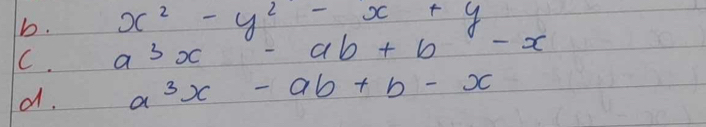 b. x² - y² - x + y
c. a³x - ab + b - x
d. a³x - ab + b - x